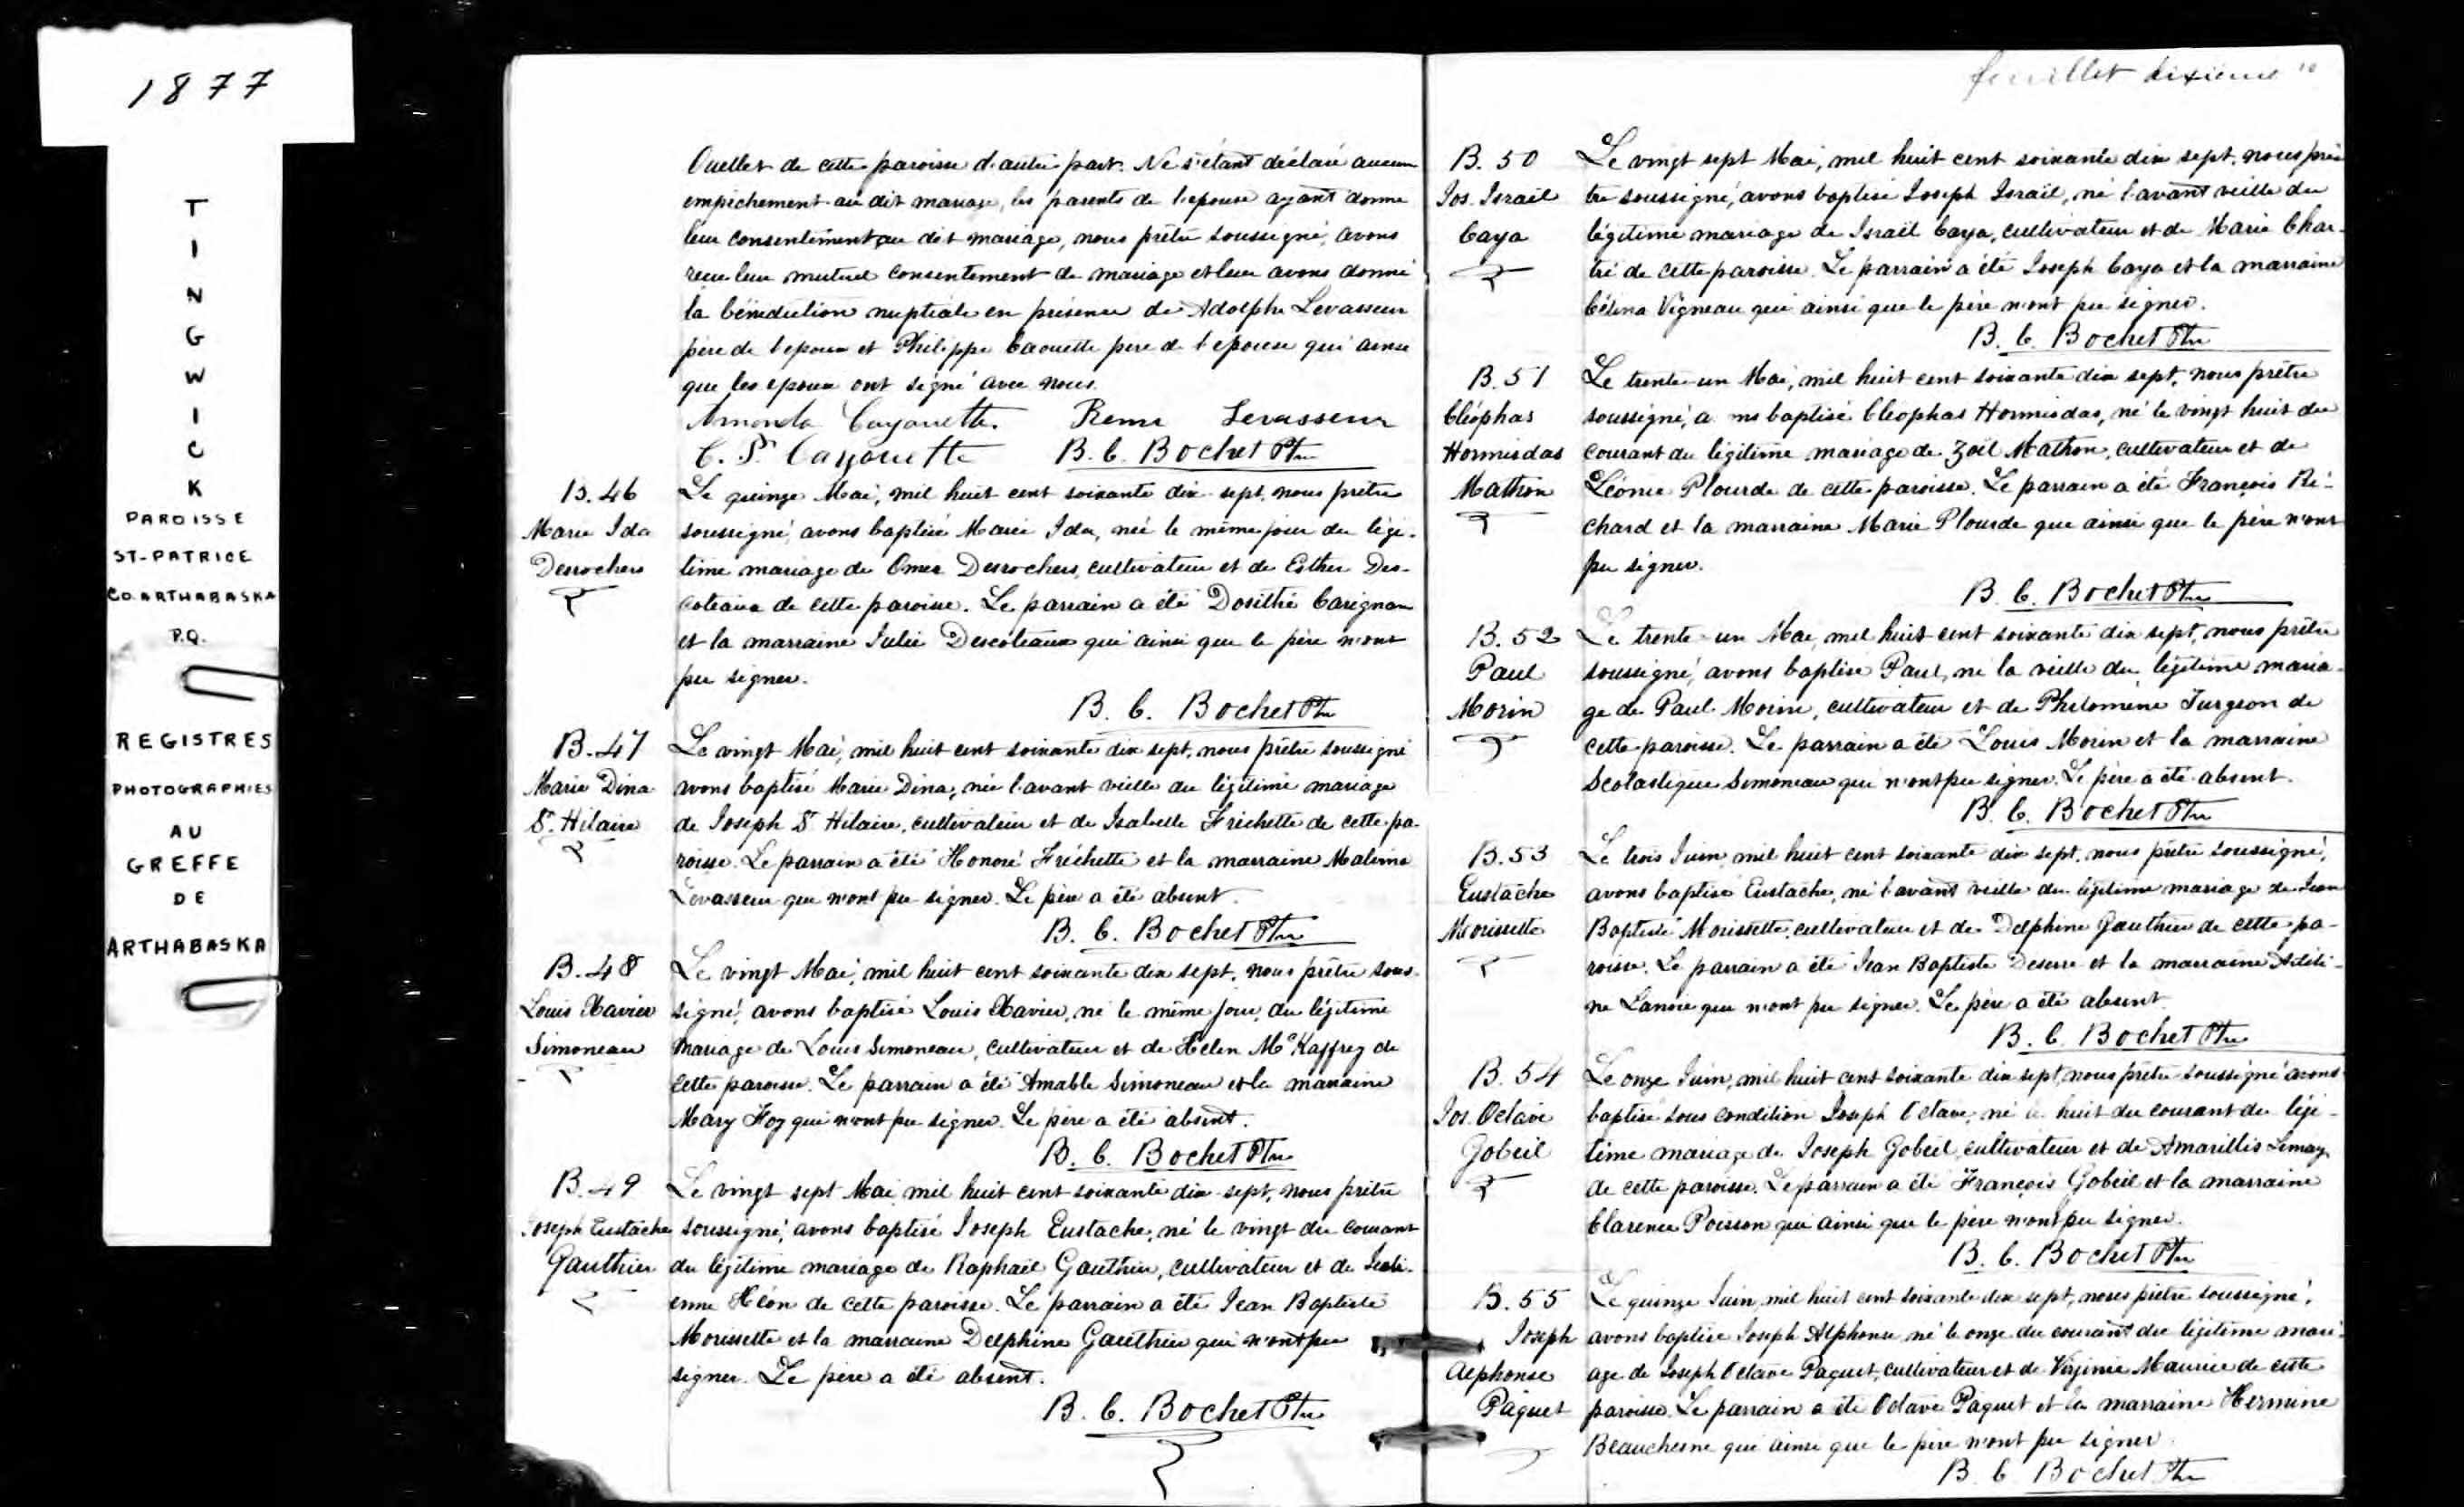 1877
T
I
N
G
W
I
C
K
PAROISSE
ST-PATRICE
CO. ARTHABASKA
P.Q.
REGISTRES
PHOTOGRAPHIES
AU
GREFFE
DE
ARTHABASKA
Ouellet de cette paroisse d'autre part. Ne s'étant déclaré aucun
empêchement au dit mariage, les parents de l'epouse ayant donné
leur consentement au dit mariage, nous prêtre soussigné, avons
reçu leur mutuel consentement de mariage et leur avons donné
la bénédiction nuptiale en présence de Adolphe Levasseur
père de l'epoux et Philippe Caouette père de l'epouse qui ainsi
que les epoux ont signé avec nous.
Amanda Cayouette Remi Levasseur
C. P. Cayouette B. C. Bochet Ptre
B. 46
Marie Ida
Desrochers
Le quinze Mai, mil huit cent soixante dix sept, nous prêtre
soussigné, avons baptisé Marie Ida, née le même jour du légi-
time mariage de Omer Desrochers, cultivateur et de Esther Des-
coteaux de cette paroisse. Le parrain a été Dosithé Carignan
et la marraine Julie Descoteaux qui ainsi que le père n'ont
pu signer.
B. C. Bochet Ptre
B. 47
Marie Dina
St. Hilaire
Le vingt Mai, mil huit cent soixante dix sept, nous prêtre soussigné
avons baptisé Marie Dina, née l'avant veille du légitime mariage
de Joseph St. Hilaire, cultivateur et de Isabelle Fréchette de cette pa-
roisse. Le parrain a été Honoré Fréchette et la marraine Malvina
Levasseur qui n'ont pu signer. Le père a été absent.
B. C. Bochet Ptre
B. 48
Louis Xavier
Simoneau
Le vingt Mai, mil huit cent soixante dix sept, nous prêtre sous-
signé, avons baptisé Louis Xavier, né le même jour, du légitime
mariage de Louis Simoneau, cultivateur et de Helen McKaffrey de
cette paroisse. Le parrain a été Amable Simoneau et la marraine
Mary Foy qui n'ont pu signer. Le père a été absent.
B. C. Bochet Ptre
B. 49
Joseph Eustache
Gauthier
Le vingt sept Mai mil huit cent soixante dix sept, nous prêtre
soussigné, avons baptisé Joseph Eustache, né le vingt du courant
du légitime mariage de Raphaël Gauthier, cultivateur et de
enne Héon de cette paroisse. Le parrain a été Jean Baptiste
Morissette et la marraine Delphine Gauthier qui n'ont pu
signer. Le père a été absent.
B. C. Bochet Ptre
feuillet dixième 10
B. 50
Jos. Israël
Caya
Le vingt sept Mai, mil huit cent soixante dix sept, nous prê-
tre soussigné, avons baptisé Joseph Israël, né l'avant veille du
légitime mariage de Israël Caya, cultivateur et de Marie Char-
tré de cette paroisse. Le parrain a été Joseph Caya et la marraine
Célina Vigneau qui ainsi que le père n'ont pu signer.
B. C. Bochet Ptre
B. 51
Cléophas
Hormisdas
Mathon
Le trente-un Mai, mil huit cent soixante dix sept, nous prêtre
soussigné, a ns baptisé Cléophas Hormisdas, né le vingt huit du
courant du légitime mariage de Zoël Mathon, cultivateur et de
Léonie Plourde de cette paroisse. Le parrain a été François Ri-
chard et la marraine Marie Plourde que ainsi que le père n'ont
pu signer.
B. C. Bochet Ptre
B. 52
Paul
Morin
Le trente-un Mai, mil huit cent soixante dix sept, nous prêtre
soussigné, avons baptisé Paul, né la veille du légitime maria-
ge de Paul Morin, cultivateur et de Philomène Turgeon de
cette paroisse. Le parrain a été Louis Morin et la marraine
Scolastique Simoneau qui n'ont pu signer. Le père a été absent.
B. C. Bochet Ptre
B. 53
Eustache
Morissette
Le trois Juin, mil huit cent soixante dix sept, nous prêtre soussigné,
avons baptisé Eustache, né l'avant veille du légitime mariage de Jean
Baptiste Morissette, cultivateur et de Delphine Gauthier de cette pa-
roisse. Le parrain a été Jean Baptiste Deserre et la marraine Adéli-
ne Lanoie qui n'ont pu signer. Le père a été absent.
B. C. Bochet Ptre
B. 54
Jos. Octave
Gobeil
Le onze Juin, mil huit cent soixante dix sept, nous prêtre soussigné avons
baptisé sous condition Joseph Octave, né le huit du courant du légi-
time mariage de Joseph Gobeil, cultivateur et de Amarillis Lemay
de cette paroisse. Le parrain a été François Gobeil et la marraine
Clarence Poisson qui ainsi que le père n'ont pu signer.
B. C. Bochet Ptre
B. 55
Joseph
Alphonse
Paquet
Le quinze Juin, mil huit cent soixante dix sept, nous prêtre soussigné,
avons baptisé Joseph Alphonse né le onze du courant du légitime mari-
age de Joseph Octave Paquet, cultivateur et de Virginie Maurice de cette
paroisse. Le parrain a été Octave Paquet et la marraine Hermine
Beauchesne qui ainsi que le père n'ont pu signer.
B. C. Bochet Ptre